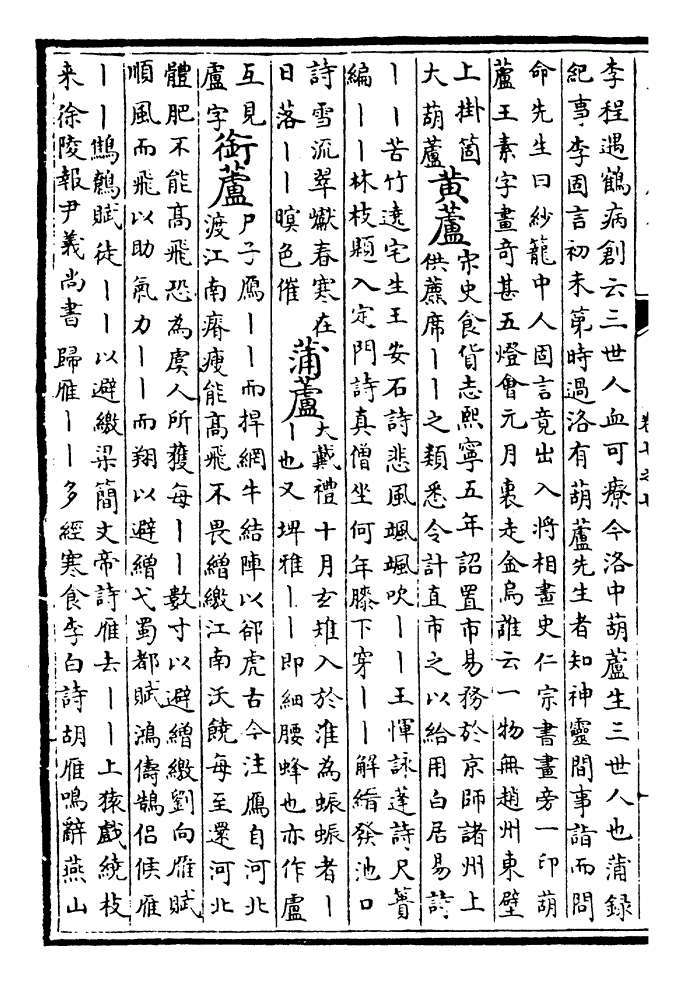 李程遇鶴病創云三世人血可療今洛中葫蘆生三世人也蒲錄
紀事李固言初未第時過洛有葫蘆先生者知神靈間事詣而問
命先生曰紗籠中人固言竟出入將相畫史仁宗書畫旁一印葫
蘆王素字畫奇甚五燈會元月裏走金烏誰云一物無趙州東壁
上掛箇
大葫蘆
黃蘆
宋史食貨志熙寧五年詔置市易務於京師諸州上
供薦席丨丨之類悉令計直市之以給用白居易詩
丨丨苦竹遶宅生王安石詩悲風颯颯吹丨丨王惲詠蓬詩尺簀
編丨丨林枝顋入定門詩真僧坐何年膝下穿丨丨解縉發池口
詩雪流翠巘春寒在
日落丨丨暝色催
蒲蘆
大戴禮十月玄雉入於淮為蜃蜃者丨
丨也又埤雅丨丨即細腰蜂也亦作盧
互見
盧字
銜蘆
尸子鴈丨丨而捍網牛結陣以郤虎古今注鴈自河北
渡江南瘠瘦能高飛不畏繒繳江南沃饒每至還河北
體肥不能高飛恐為虞人所獲每丨丨數寸以避繒繳劉向雁賦
順風而飛以助氣力丨丨而翔以避繒弋蜀都賦鴻儔鵠侶候雁
丨丨鷦鷯賦徒丨丨以避繳梁簡文帝詩雁去丨丨上猿戲繞枝
来徐陵報尹義尚書歸雁丨丨多經寒食李白詩胡雁鳴辭燕山